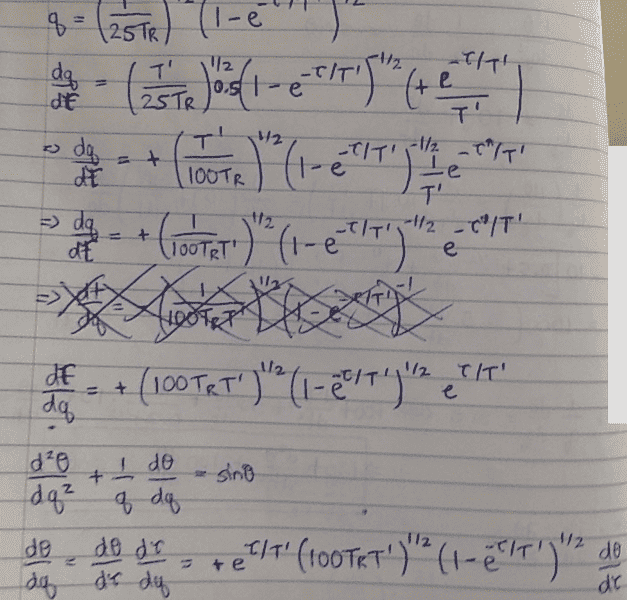 q = (1/25T_R)^1/2 (1-e^-τ/T')^1/2
dq/dτ = (T'/25T_R)^1/2 0.5 (1-e^-τ/T')^-1/2 (+ e^-τ/T'/T')
⇒ dq/dτ = + (T'/100T_R)^1/2 (1-e^-τ/T')^-1/2 1/T' e^-τ/T'
⇒ dq/dτ = + (1/100T_RT')^1/2 (1-e^-τ/T')^-1/2 e^-τ/T'
⇒ dτ/dq = (1/100T_RT')^1/2 (1-e^-τ/T')^-1
dτ/dq = + (100T_RT')^1/2 (1-e^-τ/T')^1/2 e^τ/T'
d²θ/dq² + 1/q dθ/dq = sinθ
dθ/dq = dθ/dτ dτ/dq = + e^τ/T' (100T_RT')^1/2 (1-e^-τ/T')^1/2 dθ/dτ